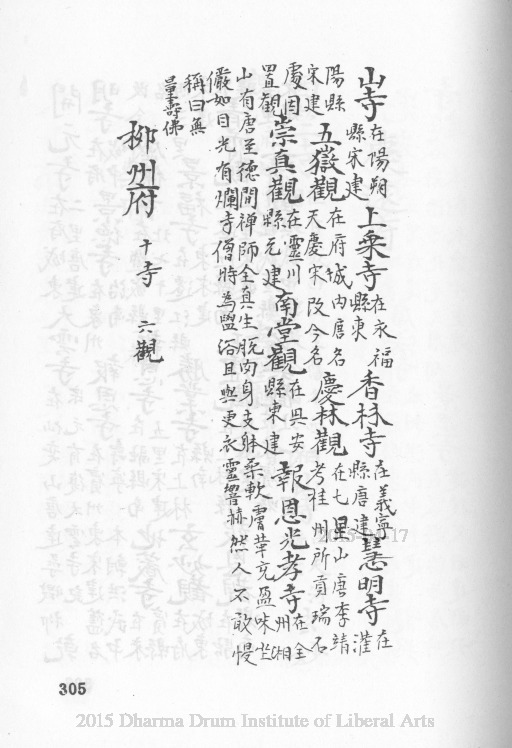 山寺在陽朔縣宋建上乘寺在永福縣東香林寺在義寧縣唐建慧明寺在灌
陽縣宋建五嶽觀在府城內唐名天慶宋改今名慶林觀在七星山唐李靖考桂州所貢瑞石
處因置觀崇真觀在靈川縣元建南堂觀在興安縣東建報恩光孝寺在全州湘
山有唐至德間禪師全真生脫肉身支躰柔軟膚革充盈坐
儼如日光有爛寺僧時為盥浴且與更衣靈響赫然人不敢慢
稱曰無
量壽佛
柳州府 十寺 六觀
305
2015 Dharma Drum Institute of Liberal Arts